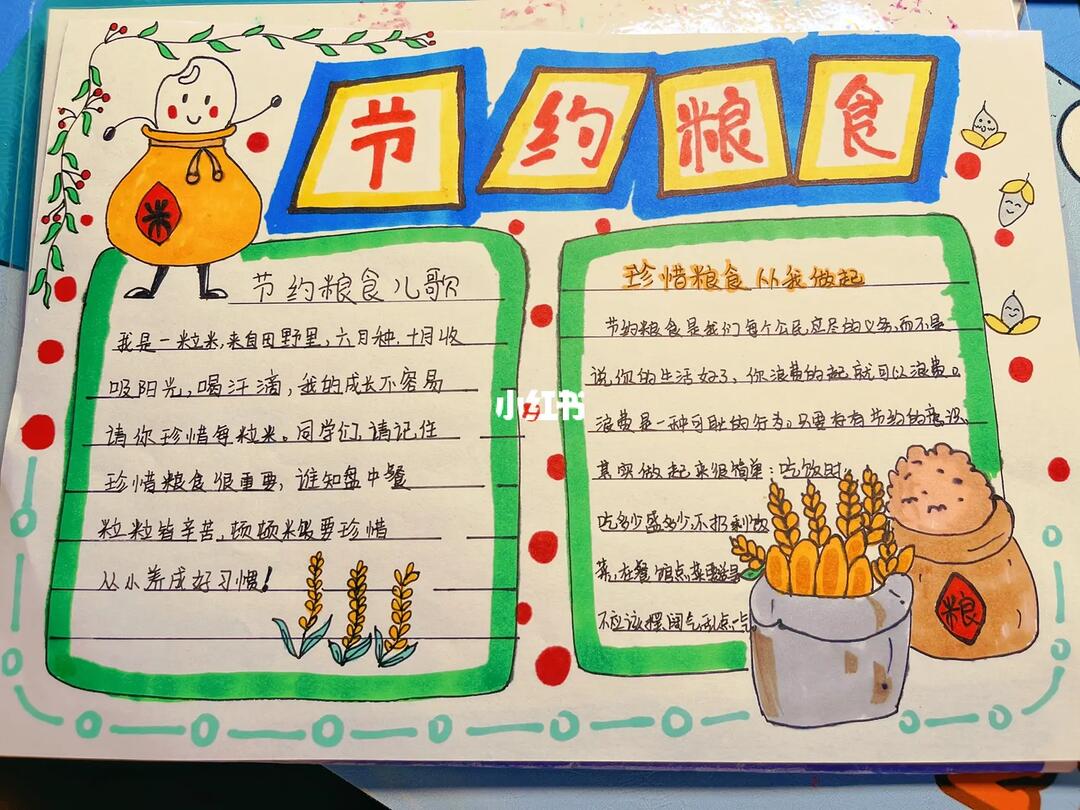 节约粮食
米
节约粮食儿歌
我是一粒米,来自田野里,六月种.十月收
吸阳光,喝汗滴,我的成长不容易
请你珍惜每粒米。同学们,请记住
珍惜粮食很重要,谁知盘中餐
粒粒皆辛苦,顿顿米饭要珍惜
从小养成好习惯!
小红书
珍惜粮食从我做起
节约粮食是我们每个公民应尽的义务,而不是
说你的生活好了,你浪费的起就可以浪费。
浪费是一种可耻的行为。只要存有节约的意识,
其实做起来很简单:吃饭时
吃多少盛多少,不扔剩饭
菜,在餐馆点菜
不应该摆阔气,乱点一气
粮